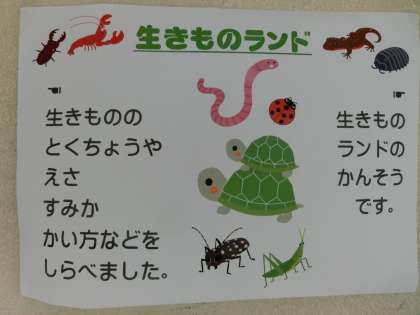 生きものランド
☚
生きものの
とくちょうや
えさ
すみか
かい方などを
しらべました。
☛
生きもの
ランドの
かんそう
です。